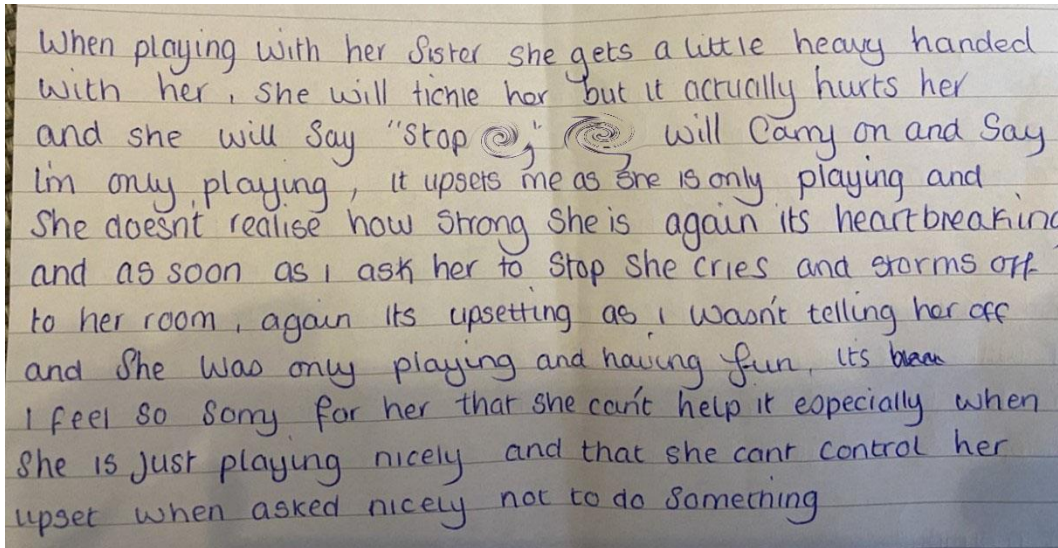 When playing with her Sister she gets a little heavy handed
with her, she will tickle her but it actually hurts her
and she will Say "Stop " will Carry on and Say
I'm only playing, it upsets me as she is only playing and
She doesn't realise how strong she is again its heartbreaking
and as soon as I ask her to Stop She cries and storms off
to her room, again its upsetting as I wasn't telling her off
and She was only playing and having fun, its
I feel so Sorry for her that she can't help it especially when
She is Just playing nicely and that she cant control her
upset when asked nicely not to do Something